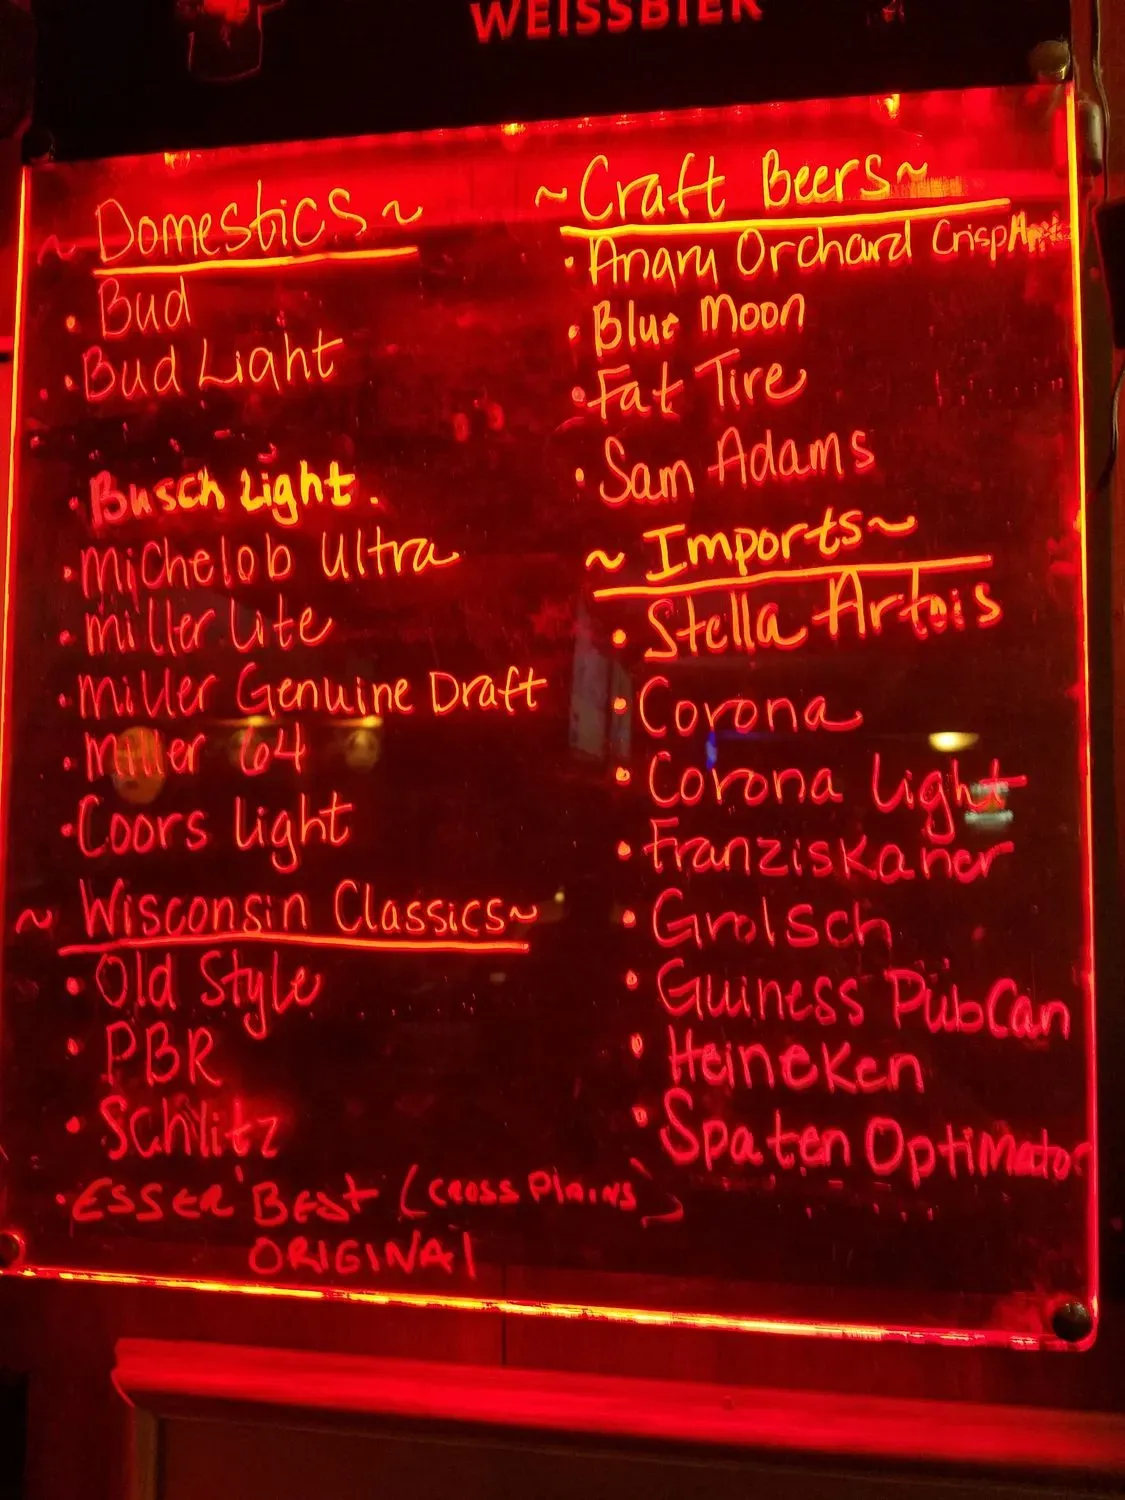 WEISSBIER
~ Domestics ~
• Bud
• Bud Light
• Busch Light.
• Michelob Ultra
• Miller Lite
• Miller Genuine Draft
• Miller 64
• Coors Light
~ Wisconsin Classics ~
• Old Style
• PBR
• Schlitz
• ESSER BEST (CROSS PlAiNS)
ORIGINAl
~ Craft Beers ~
• Angry Orchard Crisp
• Blue Moon
• Fat Tire
• Sam Adams
~ Imports ~
• Stella Artois
• Corona
• Corona Light
• Franziskaner
• Grolsch
• Guiness PubCan
• Heineken
• Spaten Optimator